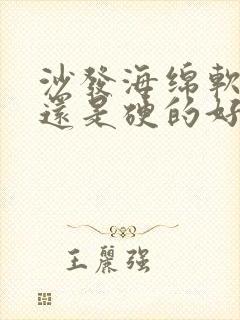 沙發海绵軟
還是硬的好
王麗强